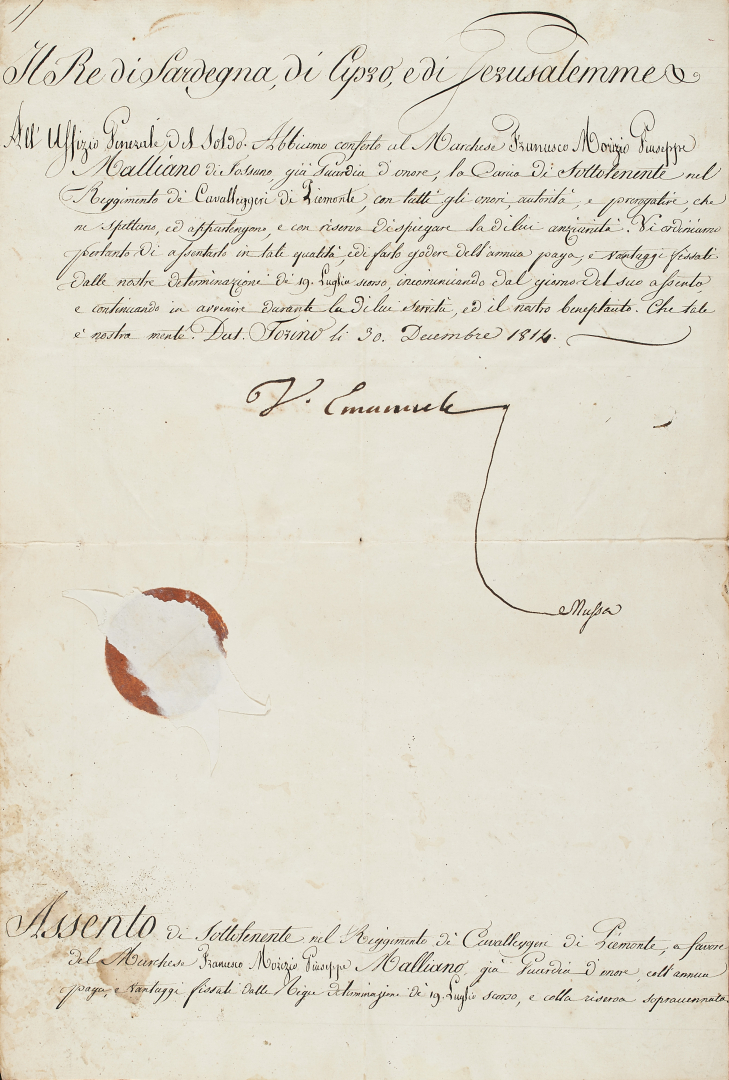 Il Re di Sardegna, di Cipro, e di Jerusalemme &
All' Uffizio Generale del Soldo. Abbiamo conferto al Marchese Francesco Morizio Giuseppe
Malliano di Fossano, già Guardia d'onore, la Carica di Sottotenente nel
Reggimento de' Cavalleggeri di Piemonte, con tutti gli onori, autorità, e prerogative che
ne spettano, ed appartengono, e con riserva di spiegare la di lui anzianità. Vi ordiniamo
pertanto di assentarlo in tale qualità, e di farlo godere dell'annua paga, e vantaggi fissati
dalle nostre determinazioni de' 19. Luglio scorso, incominciando dal giorno del suo assento
e continuando in avvenire durante la di lui servitù, ed il nostro beneplacito. Che tale
è nostra mente. Dat. Torino li 30. Decembre 1814.
V. Emanuele
Mussa
Assento di Sottotenente nel Reggimento de' Cavalleggeri di Piemonte, a favore
del Marchese Francesco Morizio Giuseppe Malliano, già Guardia d'onore, coll'annua
paga, e vantaggi fissati dalle Regie determinazioni de' 19. Luglio scorso, e colla riserva sopraccennata.